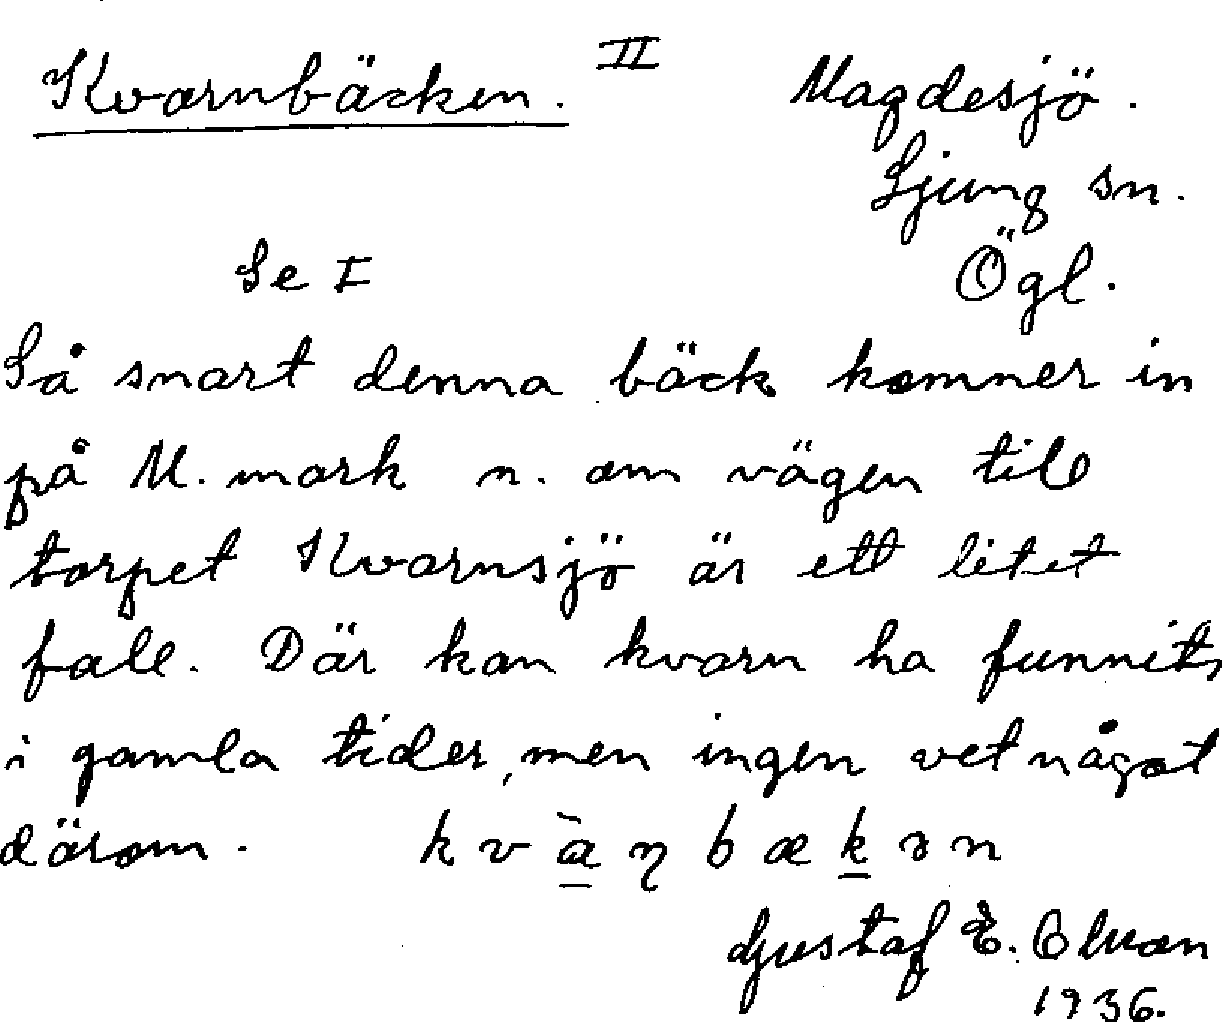 Kvarnbäcken. II Magdesjö.
Ljung sn.
Se I Ögl.
Så snart denna bäck kommer in
på M. mark n. om vägen till
torpet Kvarnsjö är ett litet
fall. Där kan kvarn ha funnits
i gamla tider, men ingen vet något
därom. kvàɳbækən
Gustaf E.
1936.